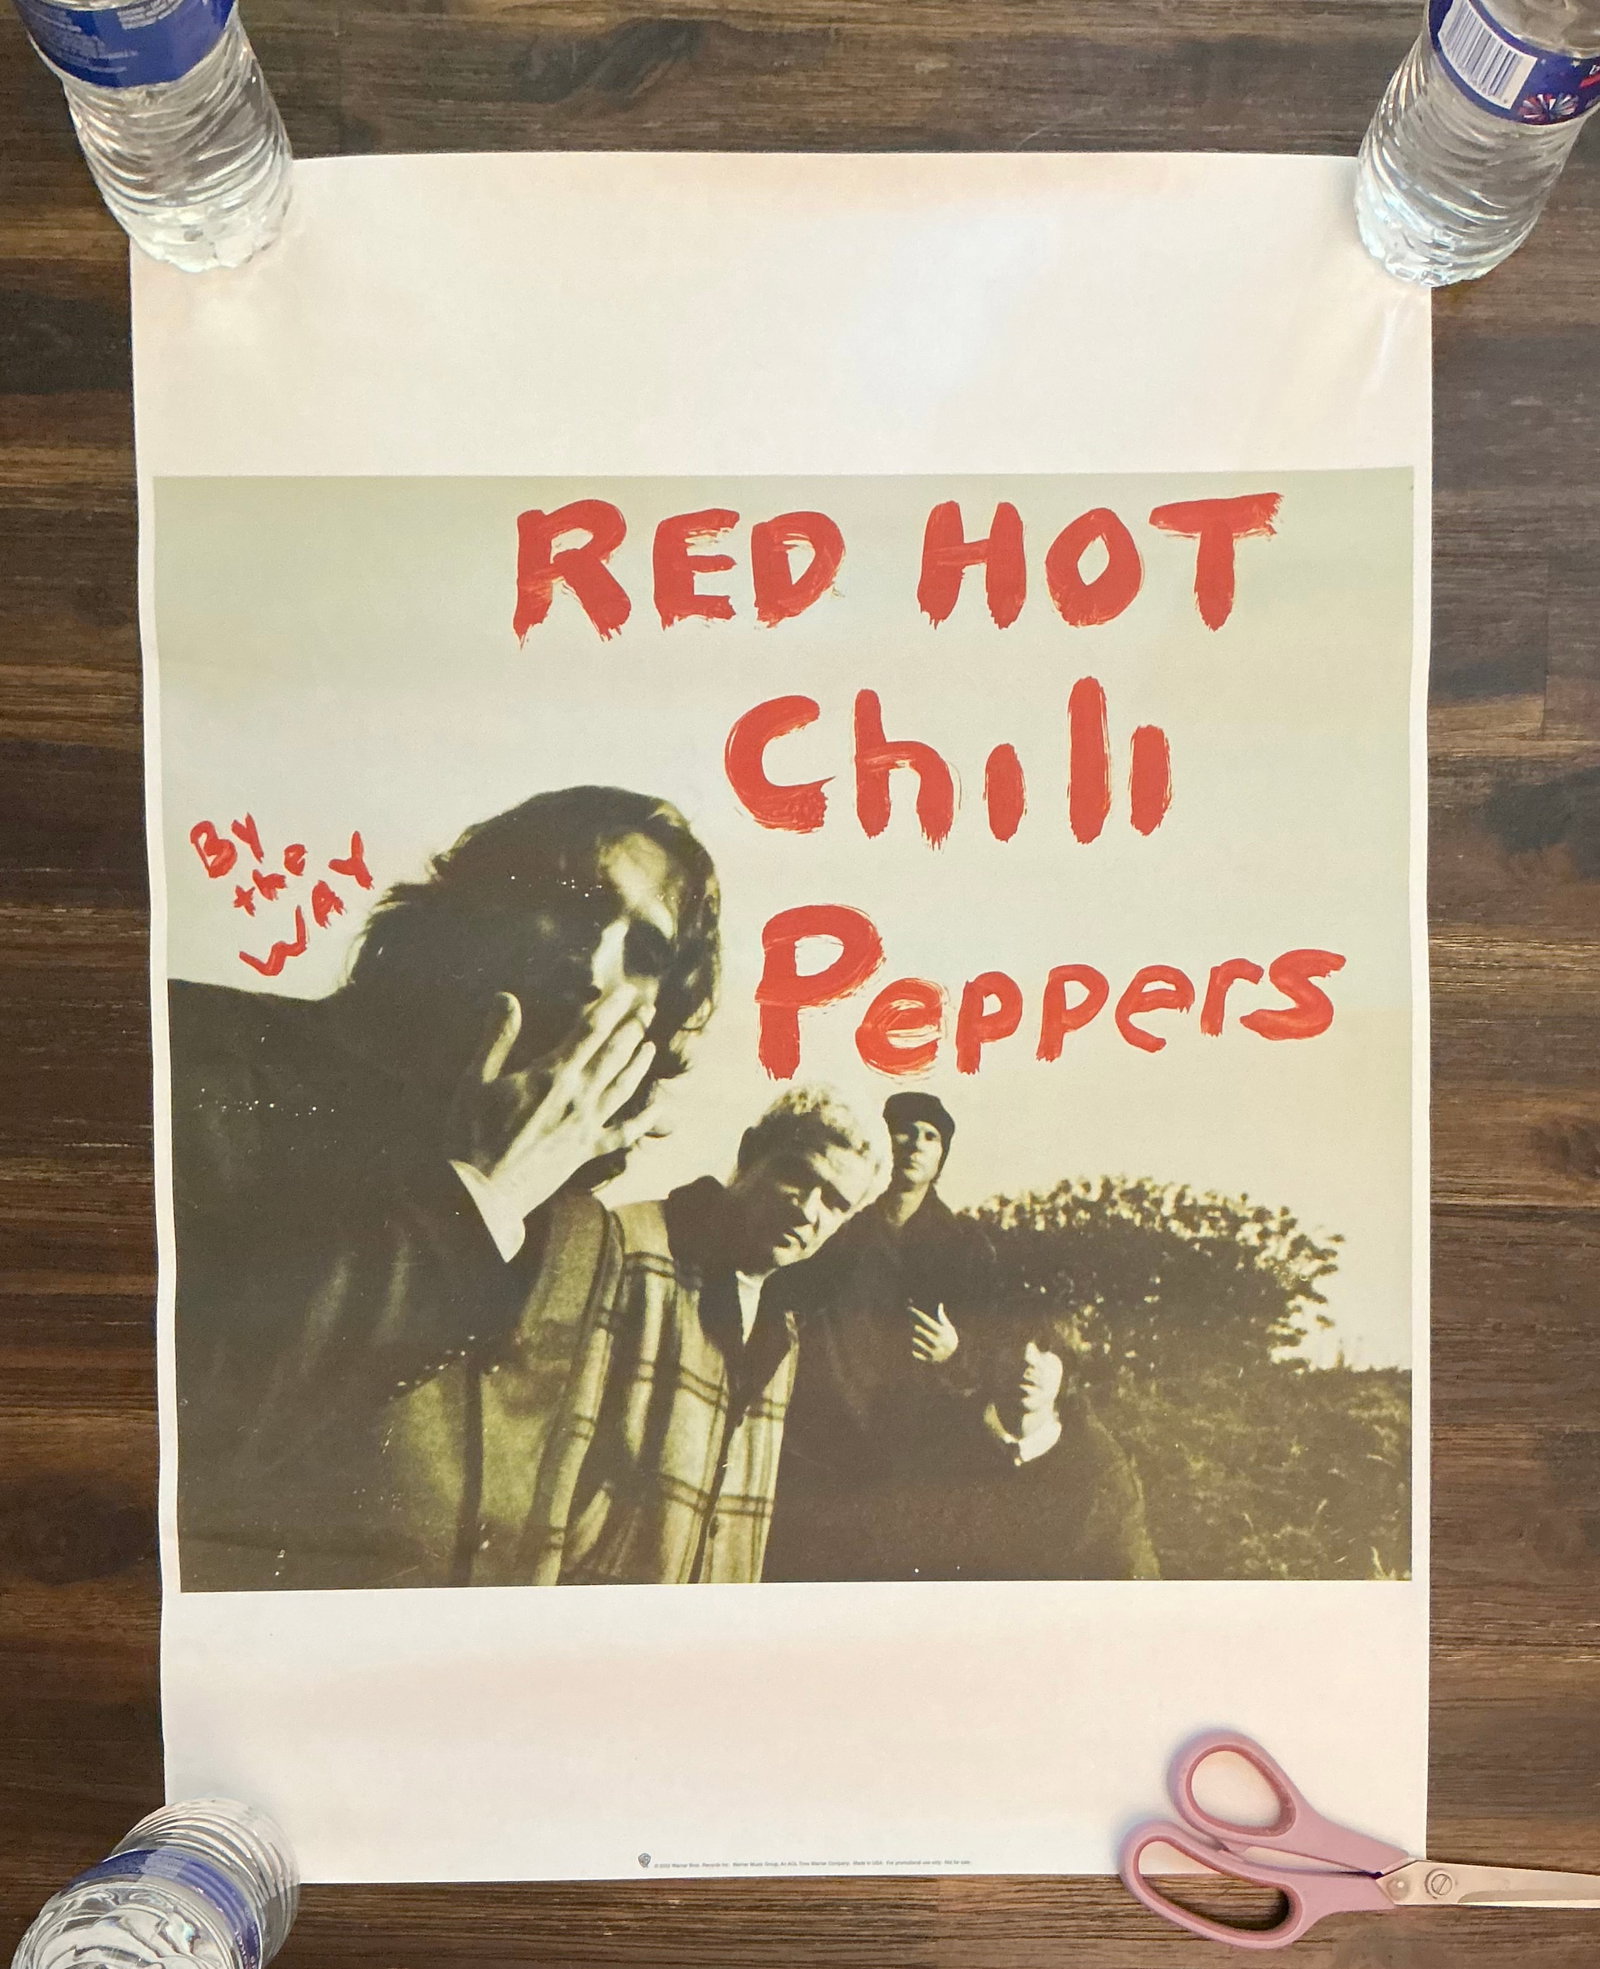 RED HOT
Chili
Peppers
By
the
WAY
© 2002 Warner Bros. Records Inc. Warner Music Group, An AOL Time Warner Company. Made in USA. For promotional use only. Not for sale.